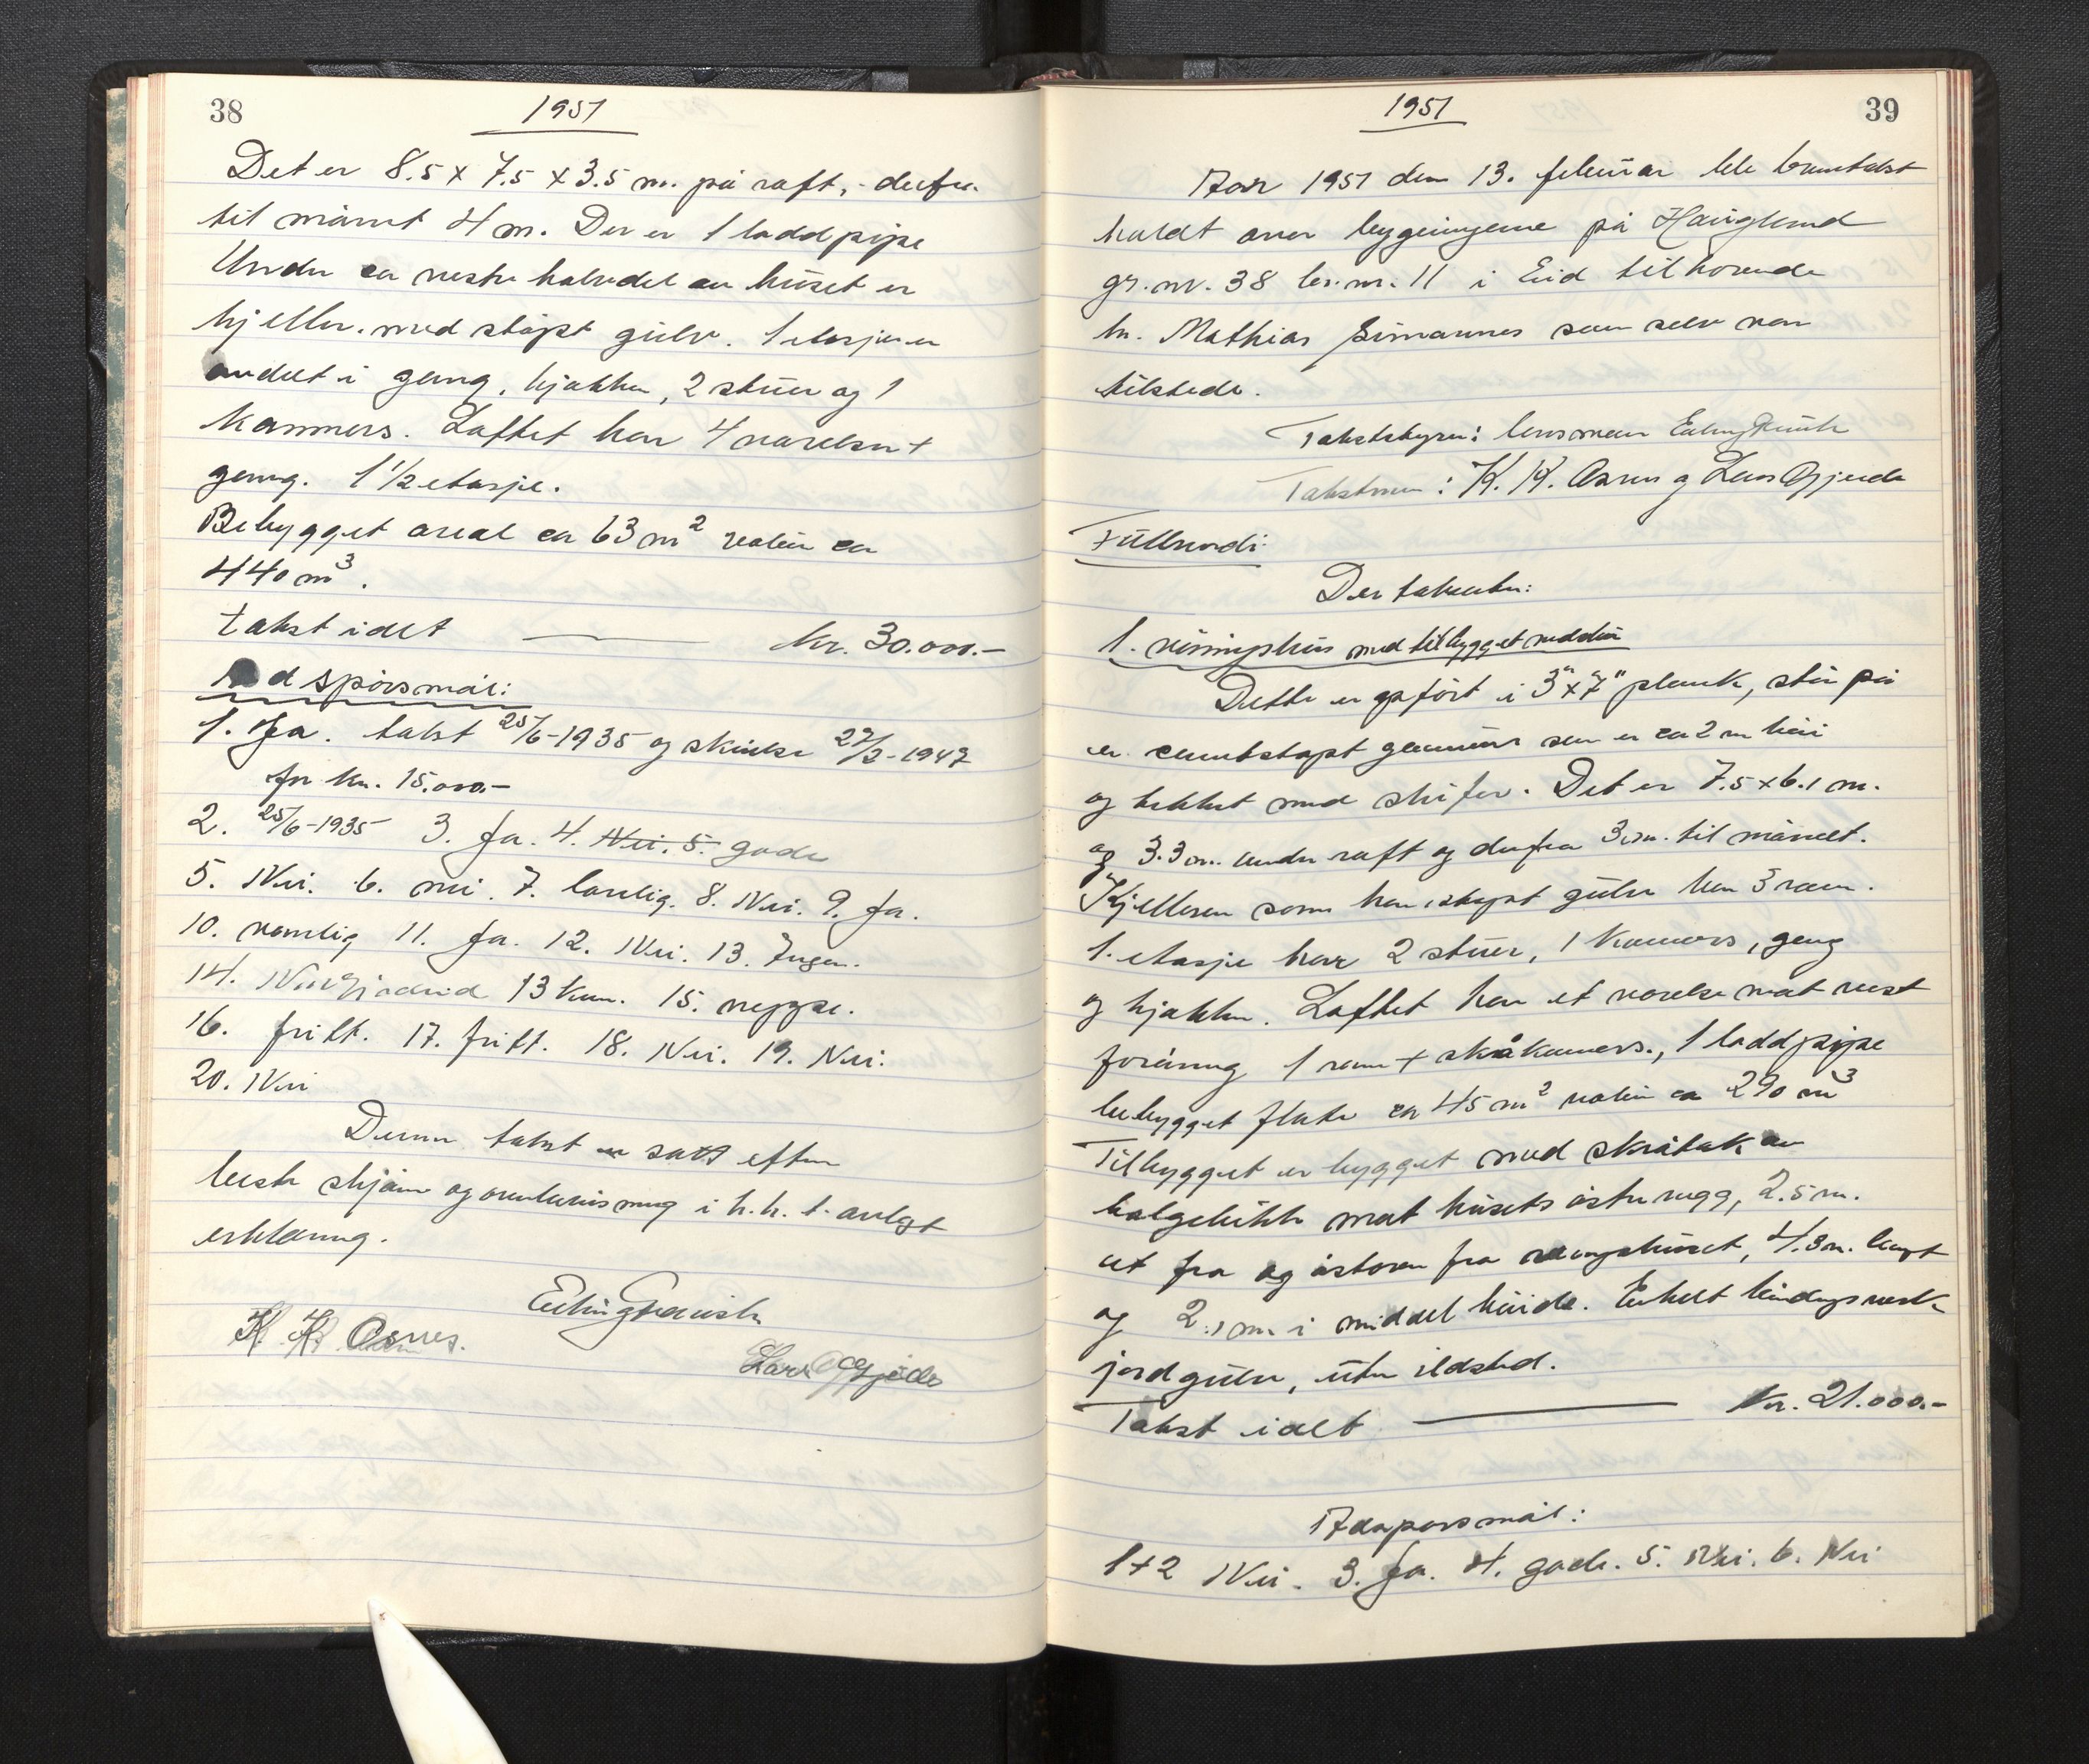 38
1951
Det er 8.5 x 7.5 x 3.5 m. på raft, - derfra
til mønet 4 m. Der er 1 laddpipe
Under ca vestre halvdel av huset er
kjeller med støpt gulv. 1 etasje er
inndelt i gang, kjøkken, 2 stuer og 1
kammers. Loftet har 4 værelser +
gang. 1 1/2 etasje.
Bebygget areal ca 63 m² volum ca
440 m³.
takst i alt — kr. 30.000.-
spørsmål:
1. Ja. takst 25/6-1935 og skindse 22/2-1947
for kr. 15.000.-
2. 25/6-1935 3. Ja. 4. Nei. 5. gode
5. Nei. 6. nei. 7. lovlig. 8. Nei. 9. Ja.
10. vanlig 11. Ja. 12. Nei. 13. Ingen.
14. 13 km. 15. neppe.
16. fritt. 17. fritt. 18. Nei. 19. Nei.
20. Nei
Denne takst er satt efter
beste skjønn og overbevisning i h.h. t. avlagt
erklæring.
K. K. Aarnes.
Lars O Gjerde
1951
39
År 1951 den 13. februar ble branntakst
holdt over bygningene på Hauglund
gr.nr. 38 br.nr. 11 i Eid tilhørende
hr. Mathias som selv var
tilstede.
Takstbestyrer: lensmann
Takstmenn: K. K. Aarnes og Lars O Gjerde
Fullverdi
Der takseres:
1. våningshus med tilbygget vedskur
Dette er opført i 3" x 7" plank, står på
en cementstøpt grunnmur som er ca 2 m høi
og tekket med skifer. Det er 7.5 x 6.1 m.
og 3.3 m. under raft og derfra 3 m. til mønet.
Kjelleren som har støpt gulv har 3 rom.
1. etasje har 2 stuer, 1 kammers, gang
og kjøkken. Loftet har et værelse mot vest
forøvrig 1 rom + skråkammers., 1 laddpipe
bebygget flate ca 45 m² volum ca 290 m³
Tilbygget er bygget med skråtak av
bølgeblikk mot husets østre vegg, 2.5 m.
ut fra og østover fra våningshuset, 4.3 m. langt
og 2.1 m i middel høide. Enkelt bindingsverk
jordgulv, uten ildsted.
Takst i alt — kr. 21.000.-
Adspørsmål:
1+2 Nei. 3. Ja. 4. gode. 5. Nei. 6. Nei